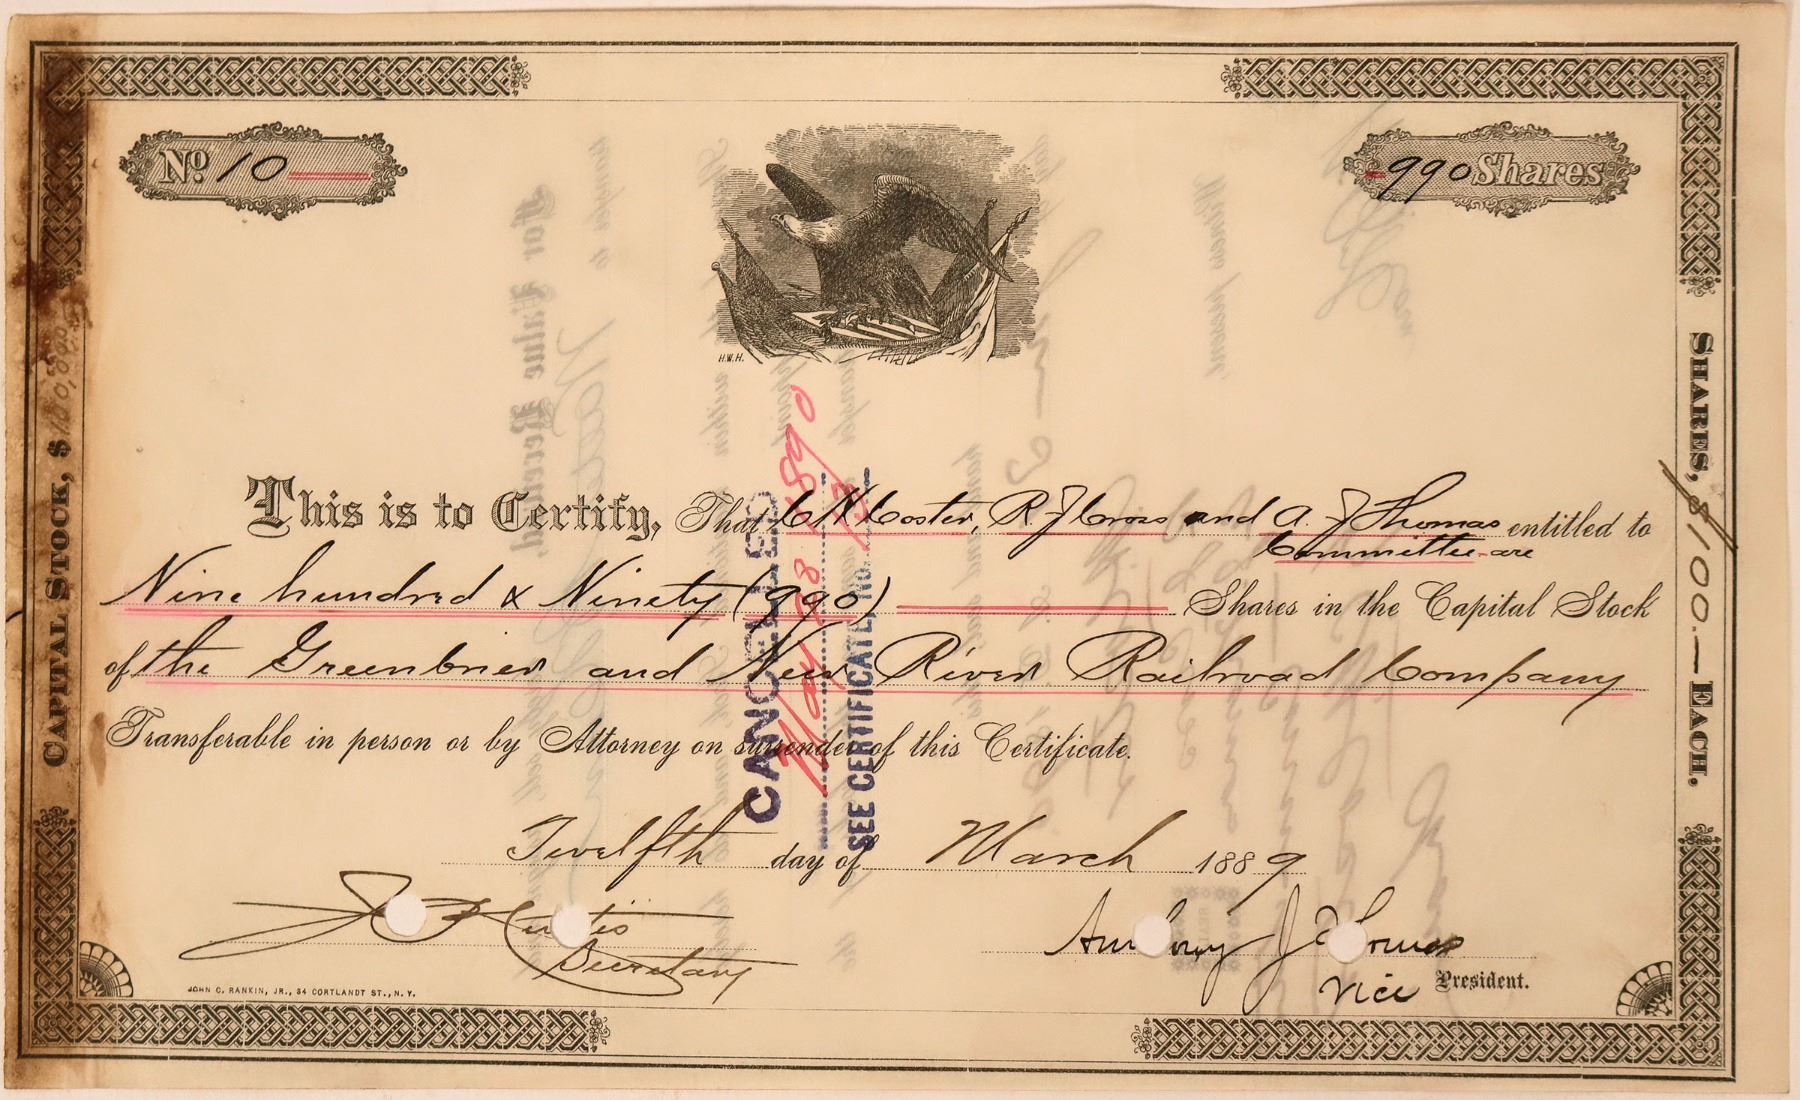 No. 10
990 Shares
H.W.H.
CAPITAL STOCK, $
SHARES, $100.— EACH.
This is to Certify, That C H Coster, R. J Cross and A. J Thomas entitled to
Committee are
Nine hundred & Ninety (990) Shares in the Capital Stock
of the Greenbrier and New River Railroad Company
Transferable in person or by Attorney on surrender of this Certificate.
CANCELLED
May 28 1890
SEE CERTIFICATE No.
Twelfth day of March 1889
J Curtis
Secretary
Anthony J Thomas
Vice President.
JOHN C. RANKIN, JR., 34 CORTLANDT ST., N.Y.